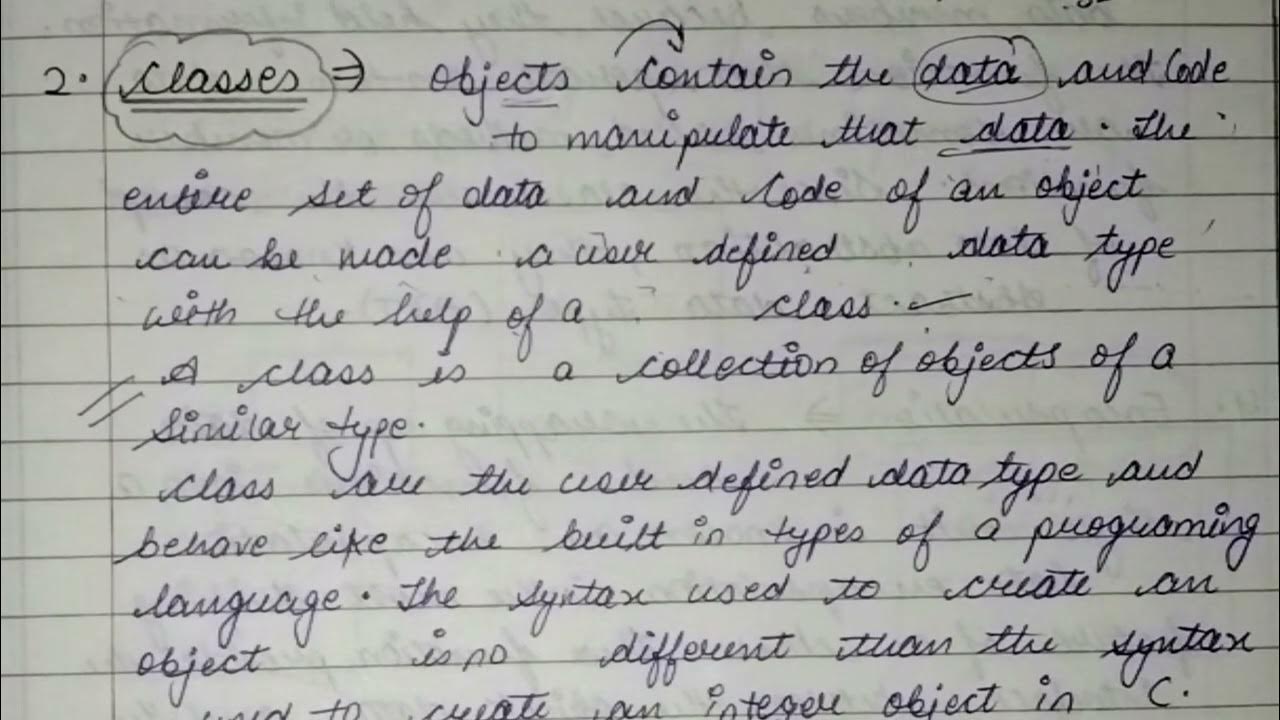 2. Classes ⇒ objects contain the data and code
to manipulate that data. The
entire set of data and code of an object
can be made a user defined data type
with the help of a class.
A class is a collection of objects of a
similar type.
class are the user defined data type and
behave like the built in types of a programing
language. The syntax used to create an
object is no different than the syntax
used to create an integer object in C.